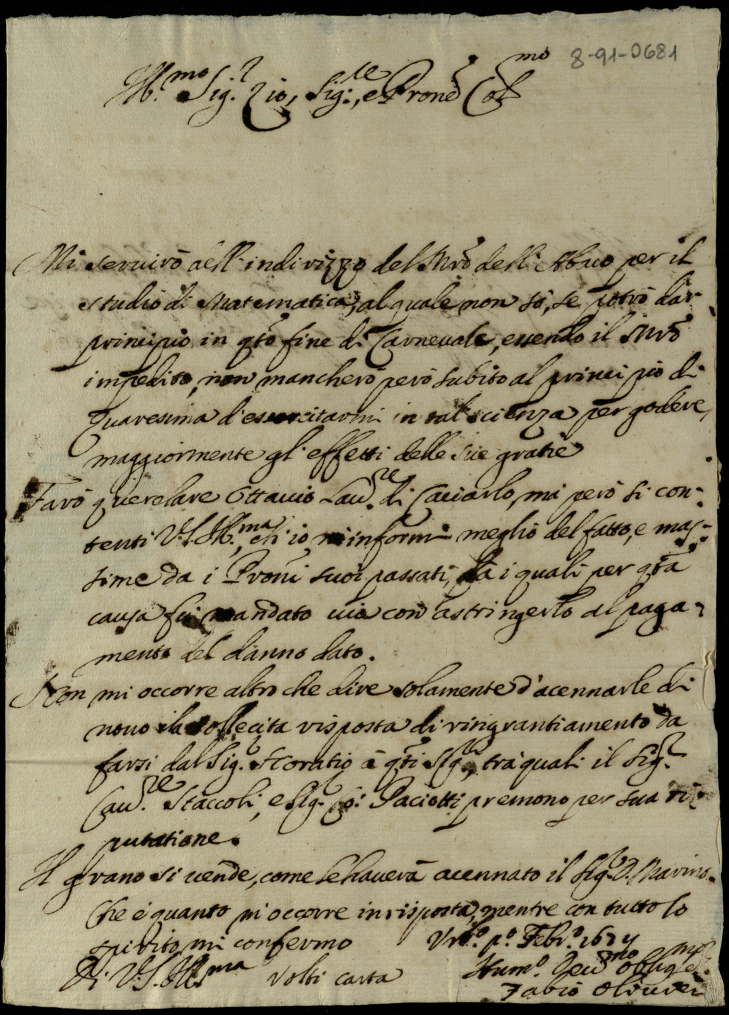 8-91-0681
Ill.mo Sig.r Zio, Sig.re, e Prone Col.mo
Mi servirò dell'indirizzo del Mro dell'Abaco per il
studio di Matematica, al quale non sò, se potrò dar
principio in qto fine di Carnevale, essendo il Mro
impedito, non mancherò però subito al principio di
Quaresima d'essercitarmi in tal scienza per godere
maggiormente gl'effetti delle sue gratie
Farò querelare Ottavio Lau.re di, mi però si con-
tenti V.S. Ill.ma, ch'io m'informi meglio del fatto, e mas-
sime da i Proni suoi passati, da i quali per qta
causa fù mandato via con astringerlo al paga-
mento del danno dato.
Non mi occorre altro che dire solamente d'acennarle di
novo la sollecita risposta di ringrantiamento da
farsi dal Sig. Horatio à qti Sig.ri, trà quali il Sig.r
Cav.re Staccoli, e Sig. Paciotti premono per sua ri-
putatione.
Il grano si vende, come le haverà acennato il Sig.r D. Marino.
Che è quanto mi occorre in risposta, mentre con tutto lo
spirito mi confermo Urb.o p.o Febr.o 1674
Di V.S. Ill.ma volti carta Hum.o
Fabio Olivieri